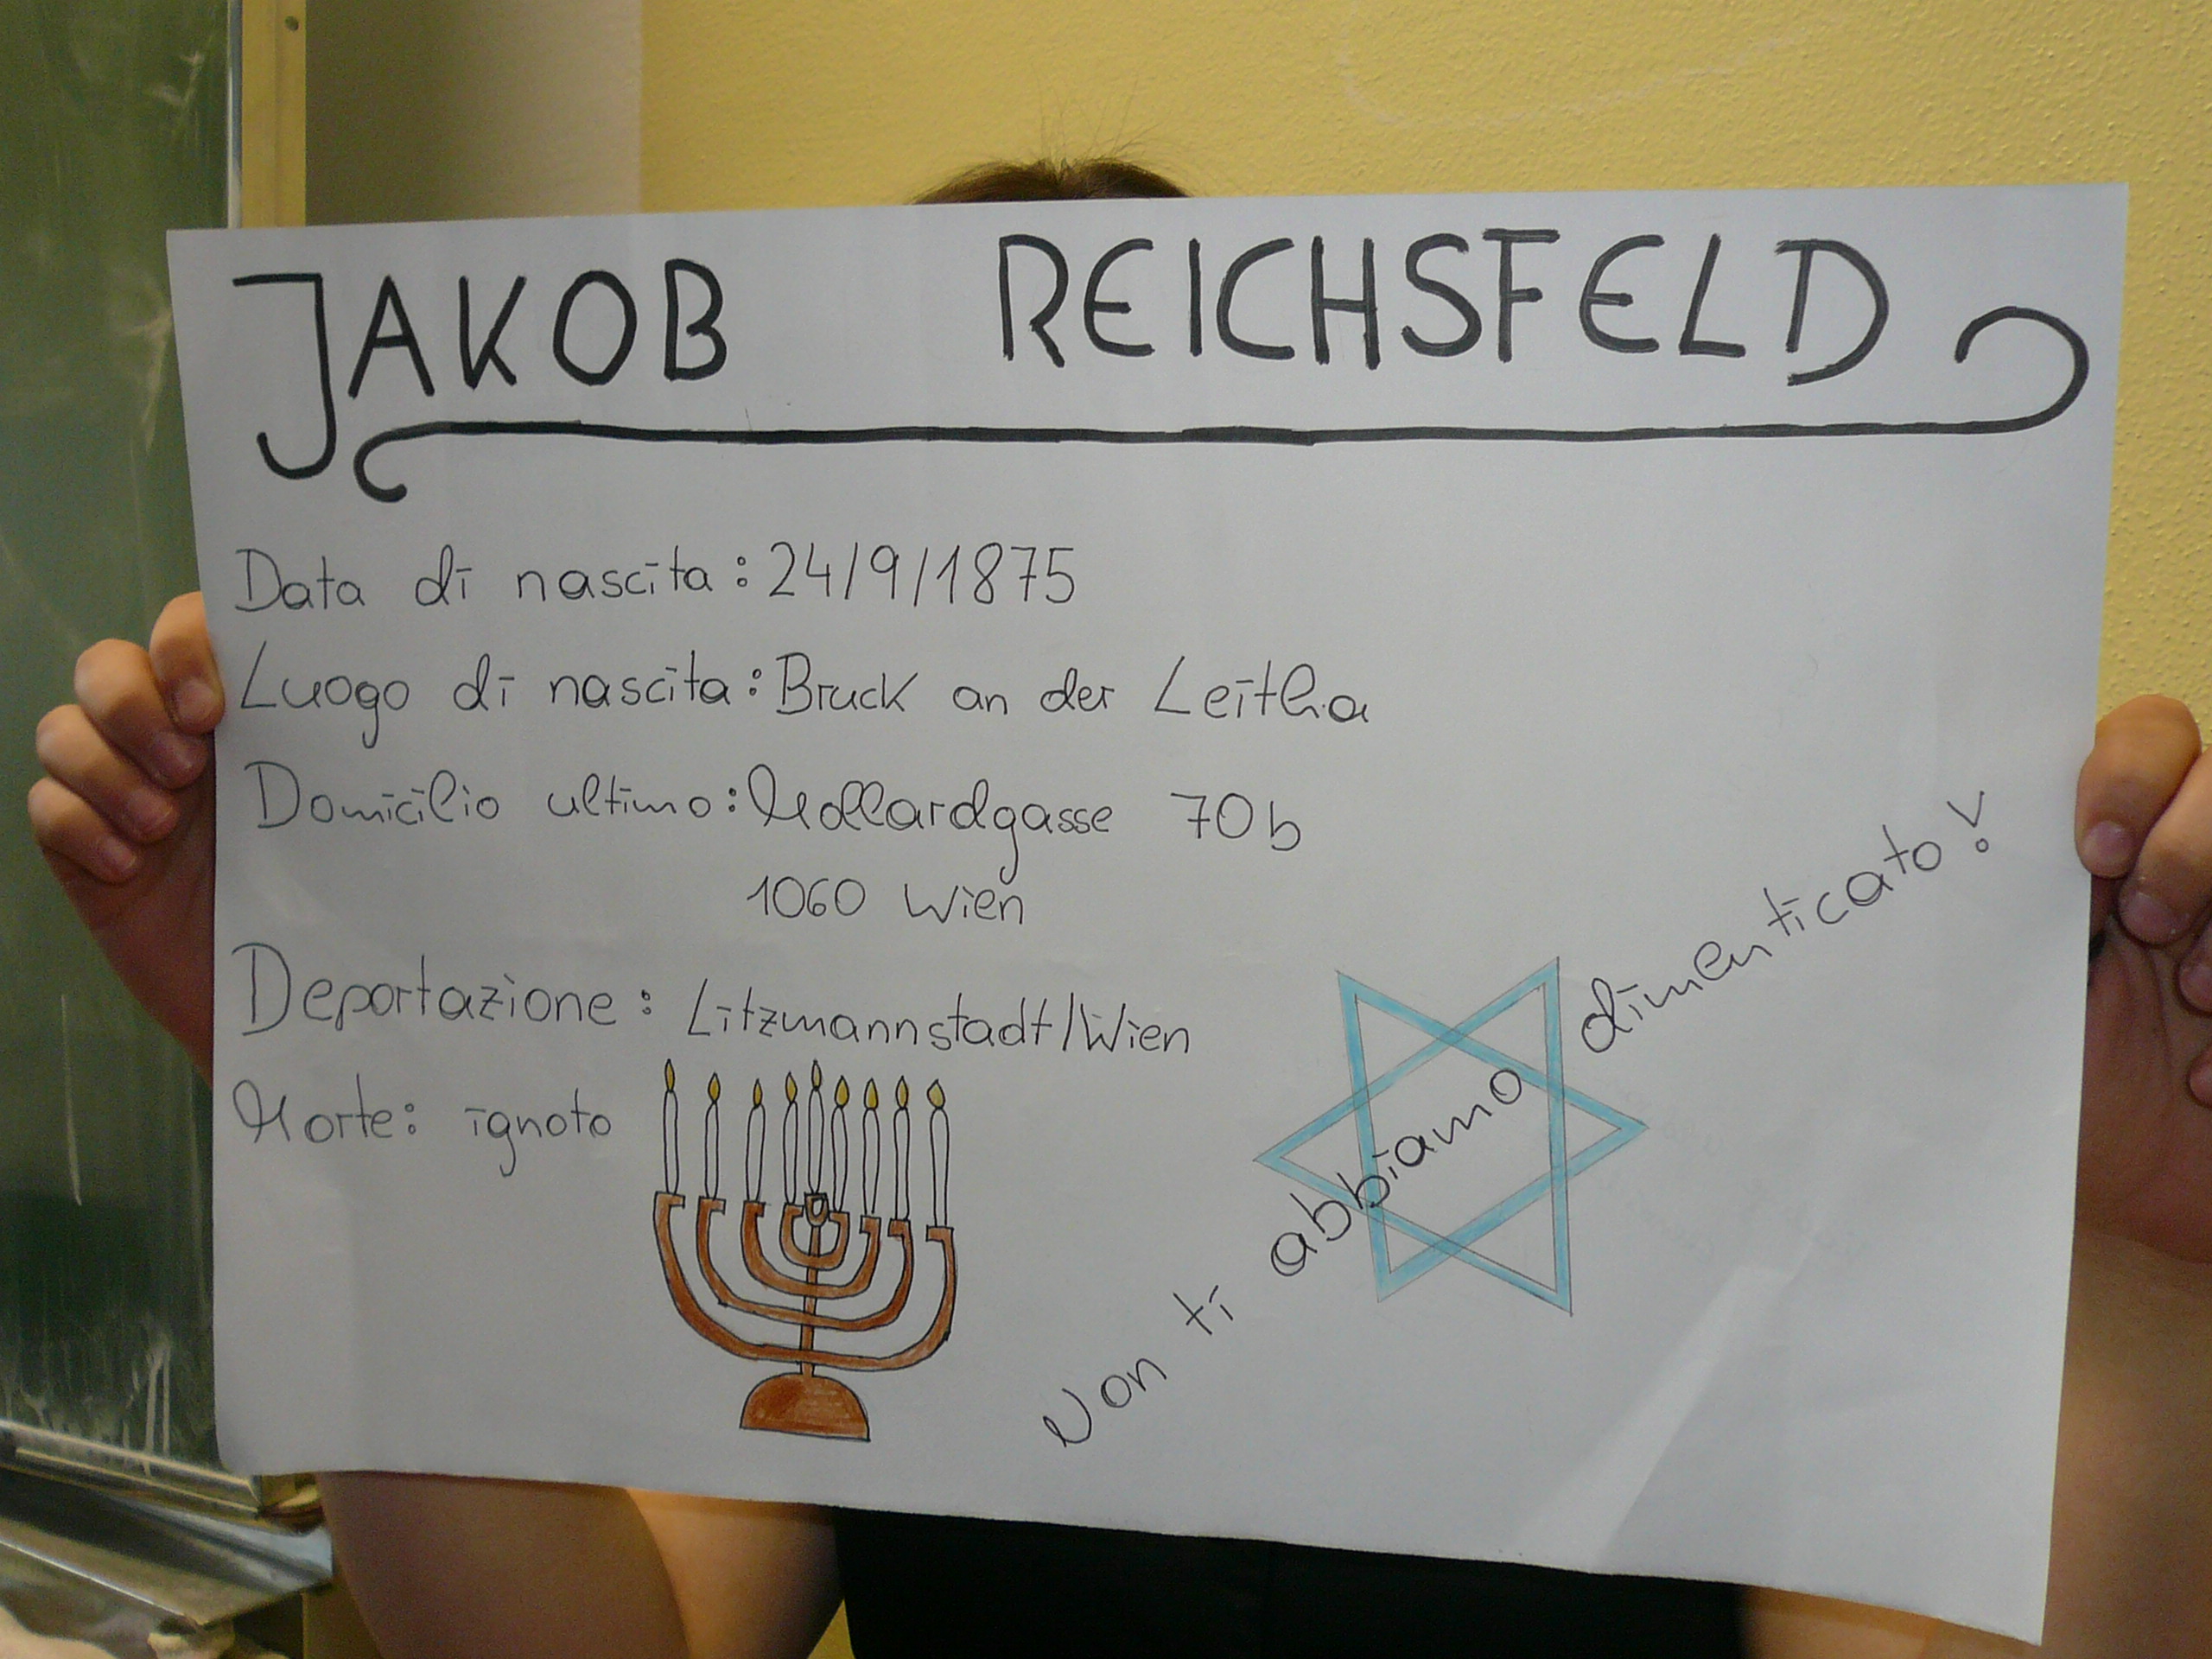 JAKOB REICHSFELD
Data di nascita: 24/9/1875
Luogo di nascita: Bruck an der Leitha
Domicilio ultimo: Mollardgasse 70b
1060 Wien
Deportazione: Litzmannstadt/Wien
Morte: ignoto
Non ti abbiamo dimenticato!